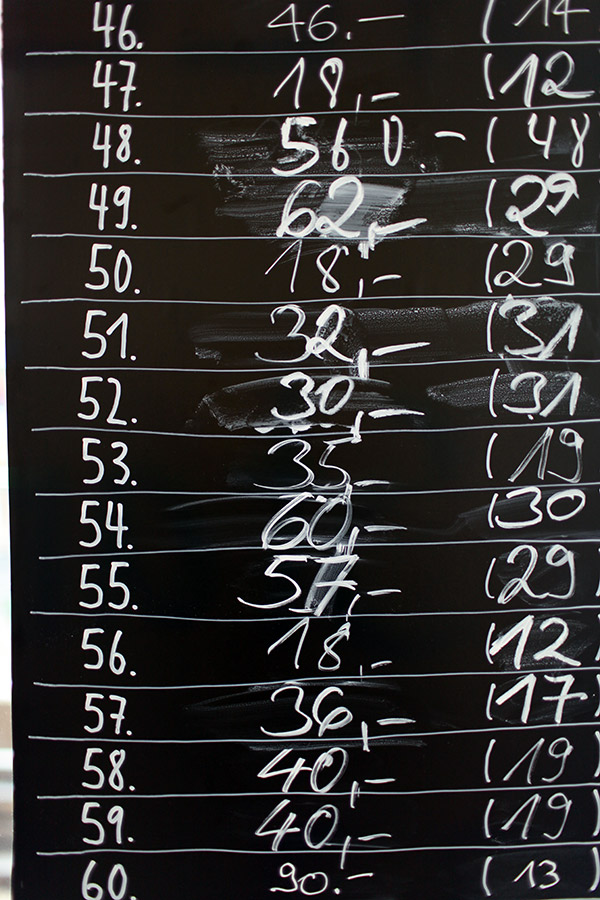 46. 46.- (14
47. 18,- (12
48. 560.- (48
49. 62,- (29
50. 18,- (29
51. 32,- (31
52. 30,- (31
53. 35,- (19
54. 60,- (30
55. 57,- (29
56. 18,- (12
57. 36,- (17
58. 40,- (19)
59. 40,- (19)
60. 90.- (13)